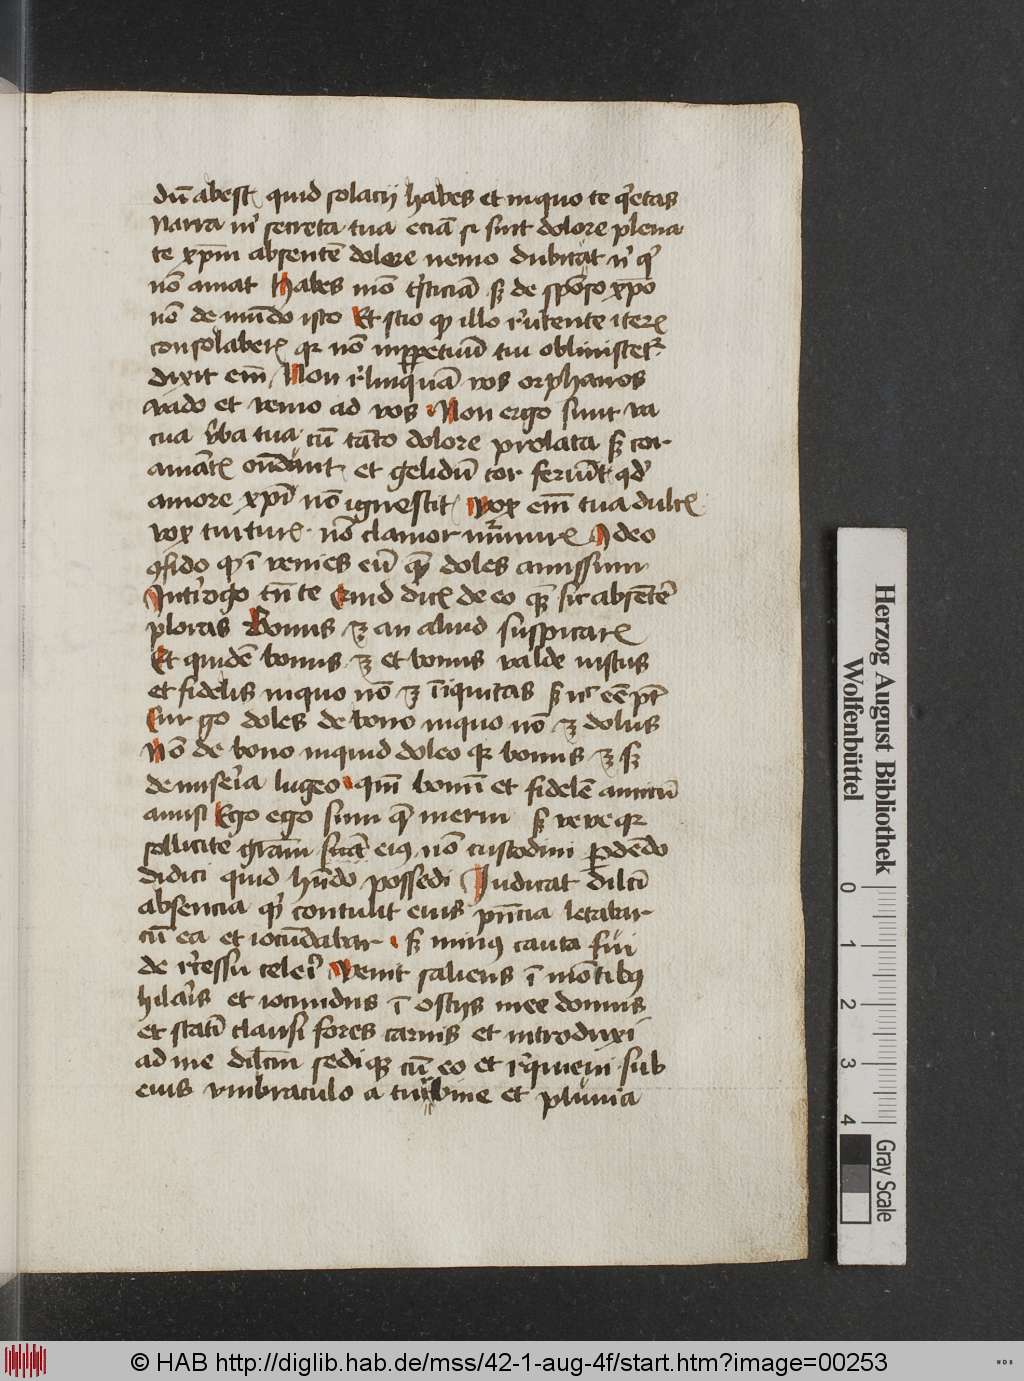 dū abest quid solacij habes et inquo te q̄etas
Narra m̄ secreta tua eciā si sint dolore plena
te xp̄m absentē dolore nemo dubitat n̄ q̄
nō amat Habes nō t̄sticiā sʒ de spōso xp̄o
nō de mūdo isto Et scio qp illo r̄utente iterꝝ
consolaberꝭ qr nō inppetuū tui obliuiscet᷑
dixit em̄ Non r̄linquā vos orphanos
vado et venio ad vos Non ergo sunt va
cua v̄ba tua cū tāto dolore prolata sʒ cor
amātꝭ ondūnt et gelidū cor feruēt qd̄
amore xp̄i nō ignescit Vox em̄ tua dulcꝭ
vox turturꝭ nō clamor murmurꝭ Adeo
ꝯfido qp ī venies eū quē doles amissum
Int̄rogo tn̄ te Quid dicꝭ de eo quē sic absētē
ploras Bonus ꝫ an aliud suspicarꝭ
Et quidē bonus ꝫ et bonus valde iustus
et fidelis inquo nō ꝫ īiquitas sʒ nͨ eē pt̄
Cur go doles de bono inquo nō ꝫ dolus
Nō de bono inquid doleo qr bonus ꝫ sʒ
de mise͛ia lugeo qm̄ bonū et fidelē amicū
amisi Ego ego sum q̄ merui sʒ ve ve qr
sollicite gr̄am eiꝰ nō custodiui ꝑdēdo
didici quid hn̄do possedi Iudicat dilc̄i
absencia q̄ contulit eius pn̄cia letabar
cū ea et iocūdabar sʒ minꝰ cauta fui
de r̄cessu cele͛i Venit saliens ī mōtibꝰ
hilaris et iocundus ī ostijs mee domus
et statī clausi fores carnis et introduxi
ad me dilc̄m sediqʒ cū eo et r̄quieui sub
eius vmbraculo a turbine et pluuia
Herzog August Bibliothek
Wolfenbüttel
0 1 2 3 4
Gray Scale
© HAB http://diglib.hab.de/mss/42-1-aug-4f/start.htm?image=00253